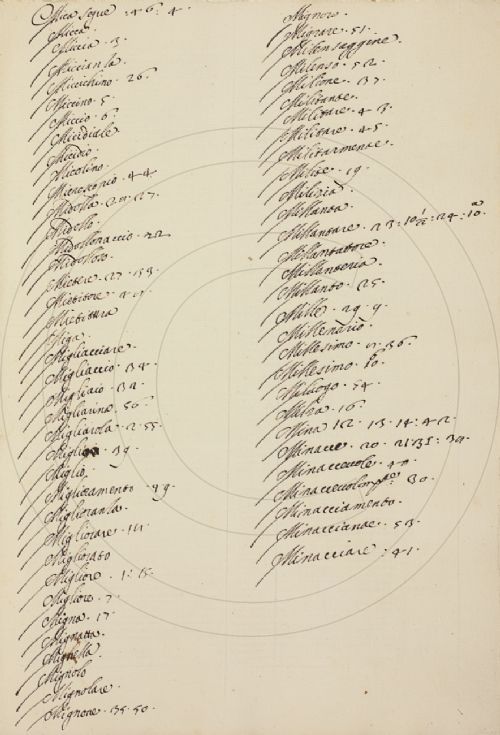 Mica segue : 46 : 4 .
Micca .
Miccia . 3 .
Miccianza .
Miccichino . 26 .
Miccino . 5 .
Miccio . 6 .
Micidiale .
Micidio .
Micolino .
Microcosmo . 44
Midolla . 20 . 27 .
Midollo .
Midollonaccio . 22
Midolloso .
Mietere . 27 . 53 .
Mietitore
Mietitura
Miga .
Migliacciare .
Migliaccio . 34 .
Migliaio . 32 .
Migliarino . 56 .
Migliarola . 2 . 55 .
39 .
Miglio .
Miglioramento . 39 .
Miglioranza .
Migliorare . 14 .
Migliorato
Migliore . 1 : 15 .
Migliore . 7 .
Migna . 17 .
Mignatta .
Mignella .
Mignolo
Mignolare .
Mignone . 35 . 50 .
Mignoro .
Migrare . 51 .
Milensaggine .
Milenso . 52 .
Milione . 37 .
Militante .
Militare . 4 . 3 .
Militare . 45 .
Militarmente .
Milite . 19 .
Milizia .
Millanta .
Millantare . 23 :
Millantatore .
Millanteria .
Millanto . 25 .
Mille . 29 . 9 .
Millenario .
Millesimo . 36 .
Millesimo . 10 .
Miluogo . 54 .
Milza . 16 .
Mina 12 . 13 . 14 : 42 .
Minacce . 20 . 30 .
Minaccevole . 40 .
30 .
Minacciamento .
Minaccianae . 53 .
Minacciare : 41 .